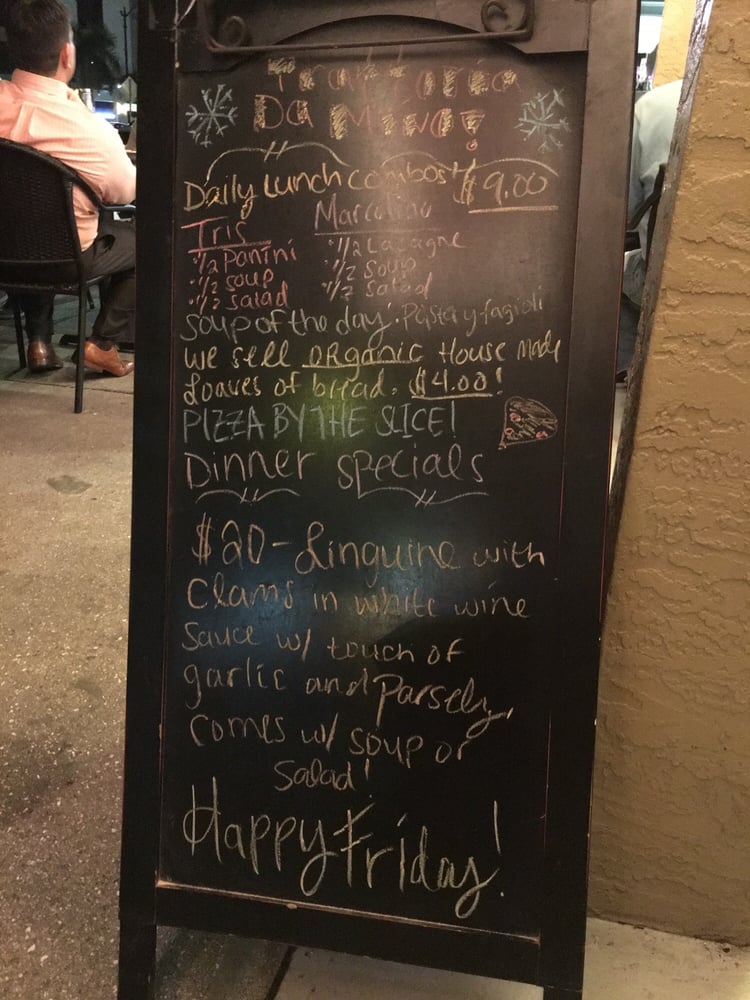 Trattoria
Da Mino!
Daily Lunch combos! $9.00
Tris
• 1/2 Panini
• 1/2 soup
• 1/2 salad
Marcolino
• 1/2 Lazagne
• 1/2 soup
• 1/2 salad
soup of the day: Pasta y fagioli
we sell ORganic House made
Loaves of bread. $4.00!
PIZZA BY THE SLICE!
Dinner specials
$20 - Linguine with
Clams in white wine
Sauce w/ touch of
garlic and Parsely,
comes w/ soup or
Salad!
Happy Friday!